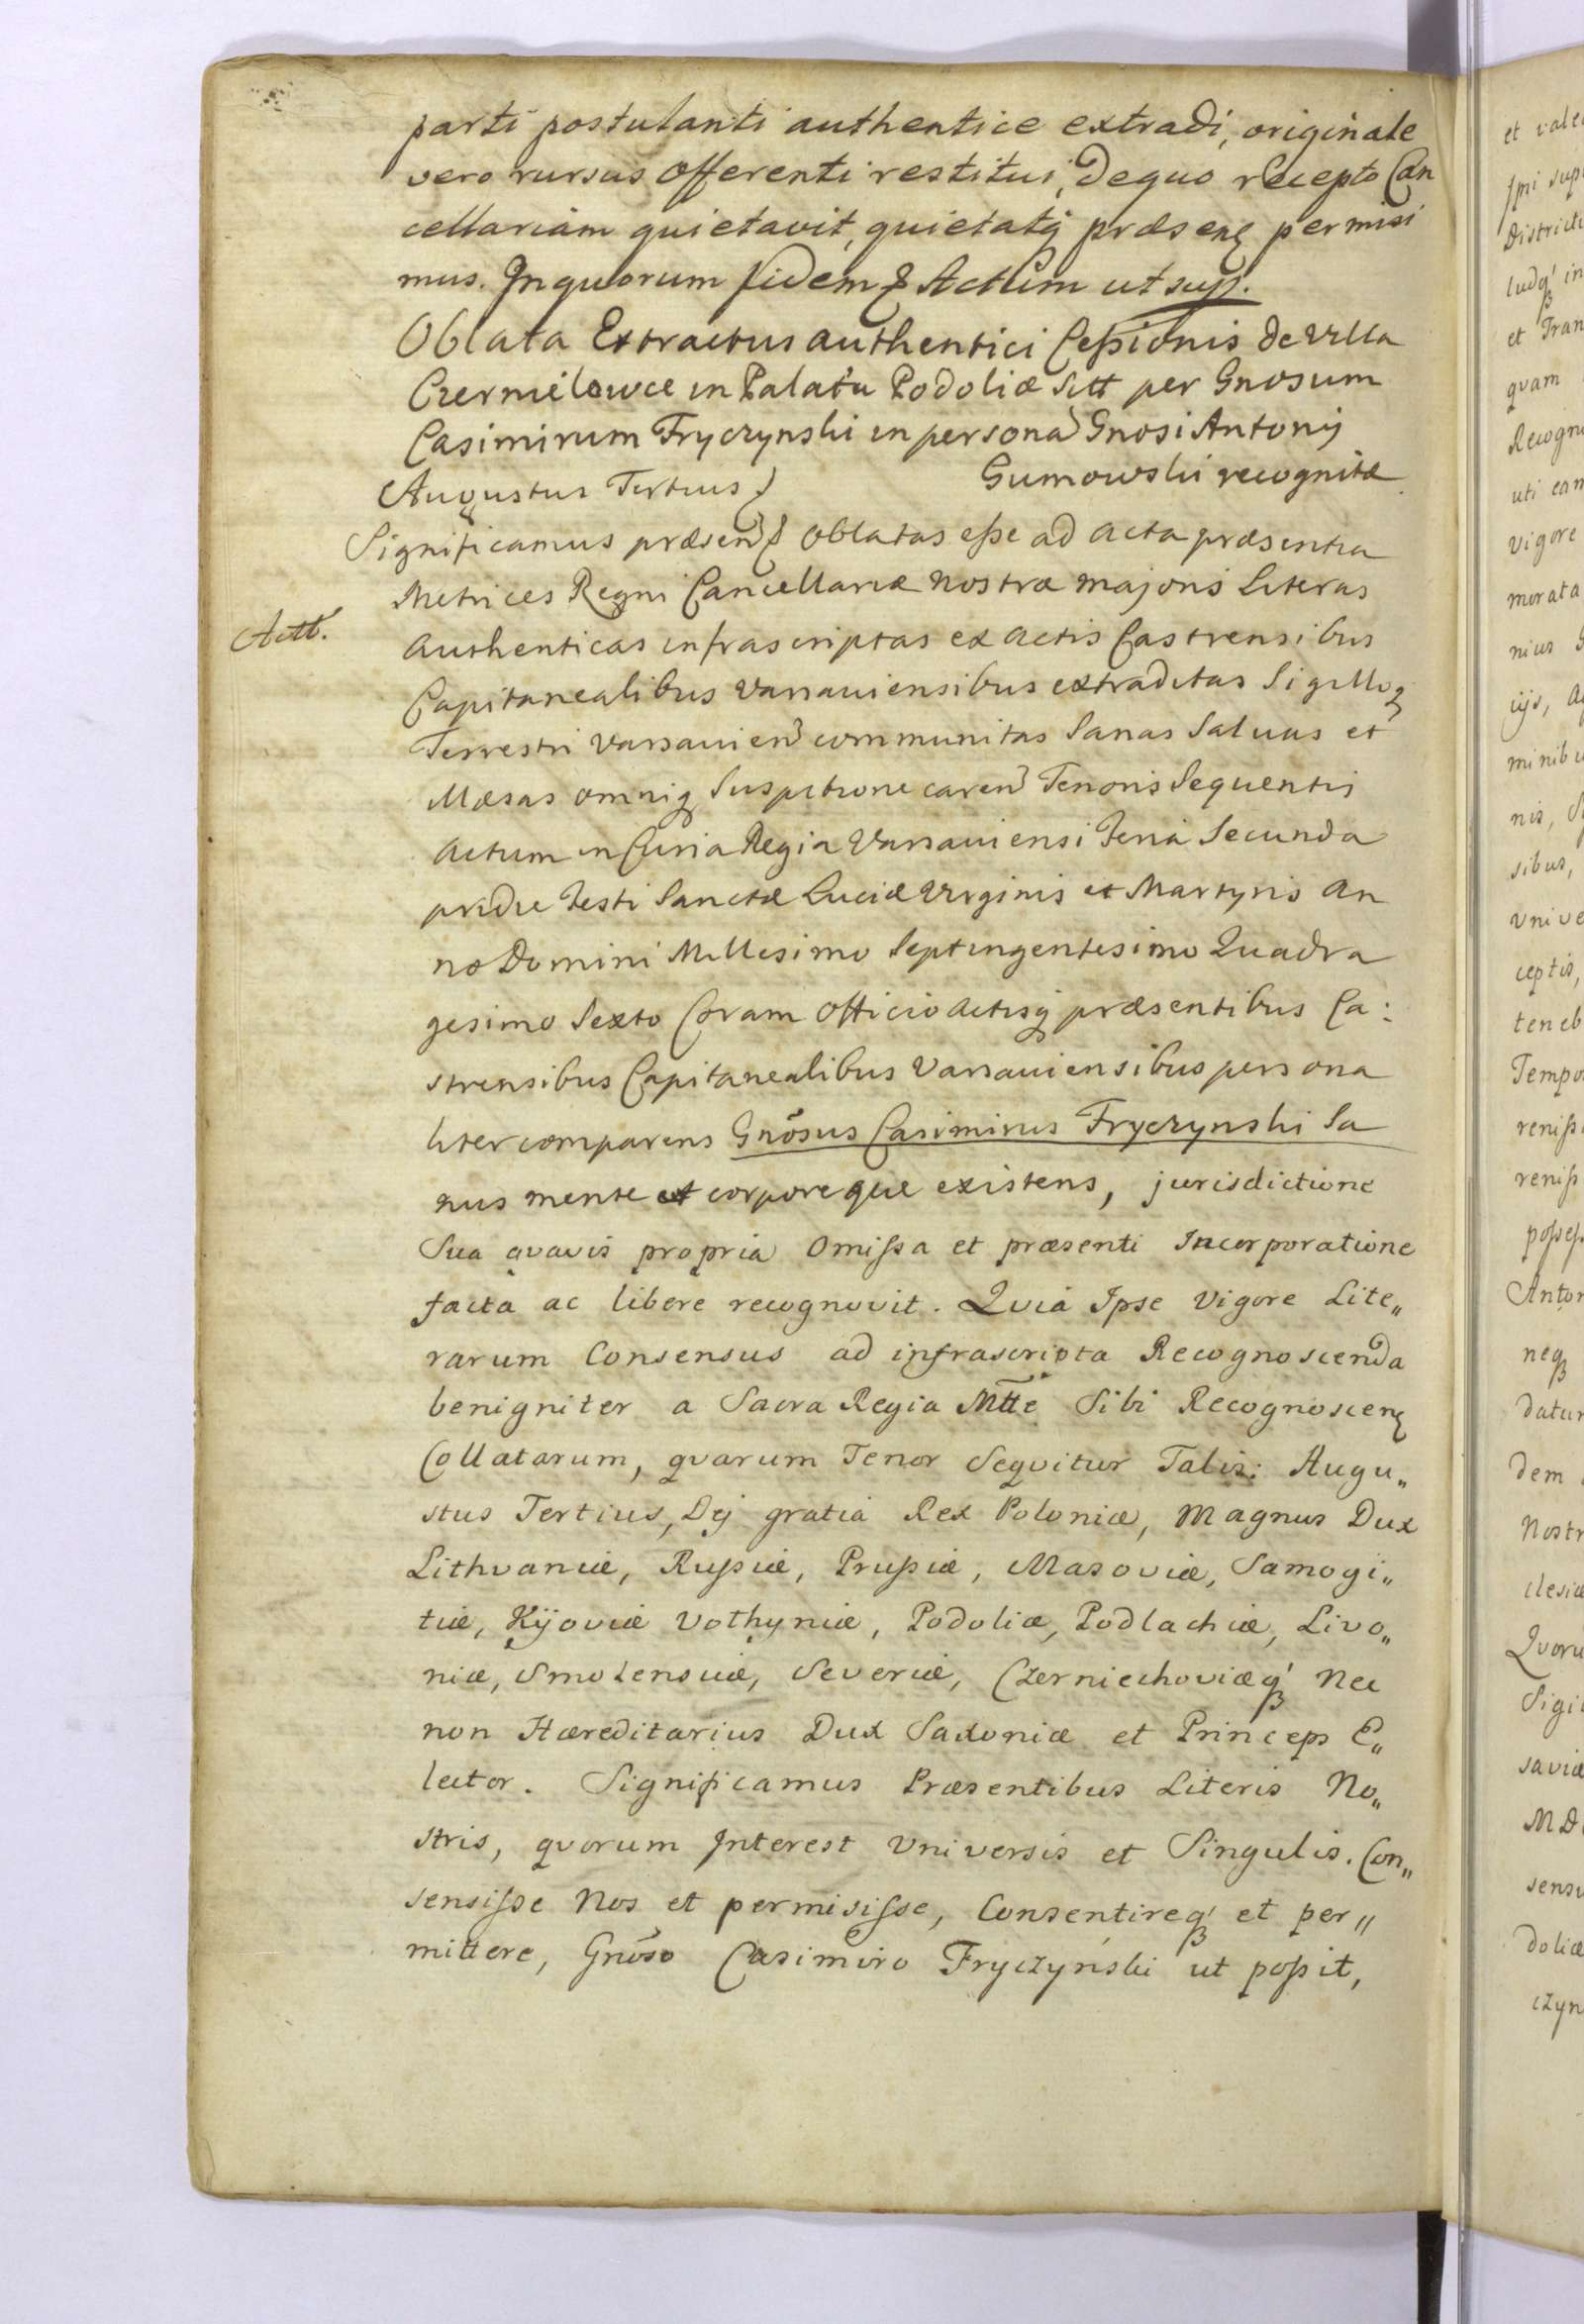 parti postulanti authentice extradi, originale
vero rursus offerenti restitui, de quo recepto Can
cellariam quietavit, quietatq præsenę permisi
mus. In quorum fidem & Actum ut sup.
Oblata Extractus authentici Ceßionis de Villa
Czernielowce in Palatu Podoliæ Sitt per Gnosum
Casimirum Fryczynski in persona Gnosi Antonij
Gumowski recognitæ
Augustus Tertius &
Significamus præsen & oblatas eße ad acta præsentia
Metrices Regni Cancellariæ nostræ majoris Literas
Actt.
authenticas infrascriptas ex actis Castrensibus
Capitanealibus Varsaviensibus extraditas Sigilloq
Terrestri Varsavien communitas Sanas Salvas et
illæsas omniq Suspitione caren Tenoris Sequentis
Actum in Curia Regia Varsaviensi Feria Secunda
pridie Festi Sanctæ Luciæ Virginis et Martyris An
no Domini Millesimo Septingentesimo Quadra
gesimo Sexto Coram Officio Actisq præsentibus Ca:
strensibus Capitanealibus Varsaviensibus persona
liter comparens Gnōsus Casimirus Fryczynski Sa
nus mente et corpore que existens, jurisdictione
Sua qvavis propria Omißa et præsenti Incorporatione
facta ac libere recognovit. Qvia Ipse Vigore Lite„
rarum Consensus ad infrascripta Recognoscenda
benigniter a Sacra Regia Mtte Sibi Recognoscenę
Collatarum, qvarum Tenor Seqvitur Talis: Augu„
stus Tertius, Dej gratia Rex Poloniæ, Magnus Dux
Lithvaniæ, Rußiæ, Prußiæ, Masoviæ, Samogi„
tiæ, Kijoviæ Volhyniæ, Podoliæ, Podlachiæ, Livo„
niæ, Smolensciæ, Severiæ, Czerniechoviæq Nec
non Hæreditarius Dux Saxoniæ et Princeps E„
lector. Significamus Præsentibus Literis No„
stris, qvorum Interest Vniversis et Singulis. Con„
sensiße Nos et permisiße, Consentireq et per„
mittere, Gnōso Casimiro Fryczyński ut poßit,